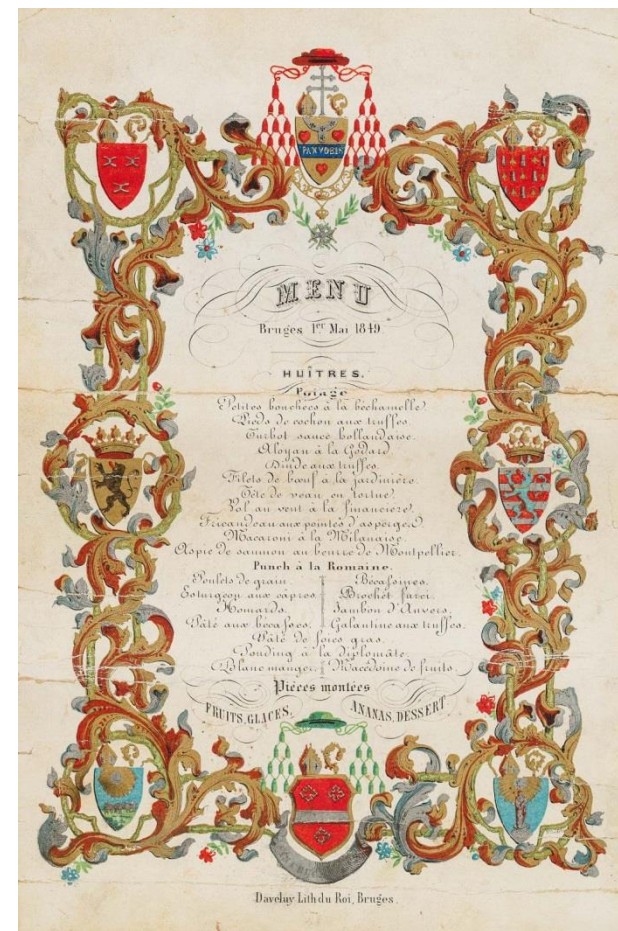 PAX VOBIS
MENU
Bruges 1er Mai 1849
HUÎTRES.
Potage
Petites bouchées à la béchamelle.
Pieds de cochon aux truffes.
Turbot sauce hollandaise.
Aloyau à la Godard.
Dinde aux truffes.
Filets de bœuf à la jardinière.
Tête de veau en tortue.
Vol au vent à la financière.
Fricandeau aux pointes d'asperges.
Macaroni à la Milanaise.
Aspic de saumon au beurre de Montpellier.
Punch à la Romaine.
Poulets de grain. Bécassines.
Esturgeon aux câpres. Brochet farci.
Homards. Jambon d'Anvers.
Pâté aux bécasses. Galantine aux truffes.
Pâté de foies gras.
Pouding à la diplomate.
Blanc manger. Macédoine de fruits.
Pièces montées
FRUITS, GLACES, ANANAS, DESSERT
Daveluy Lith du Roi, Bruges.